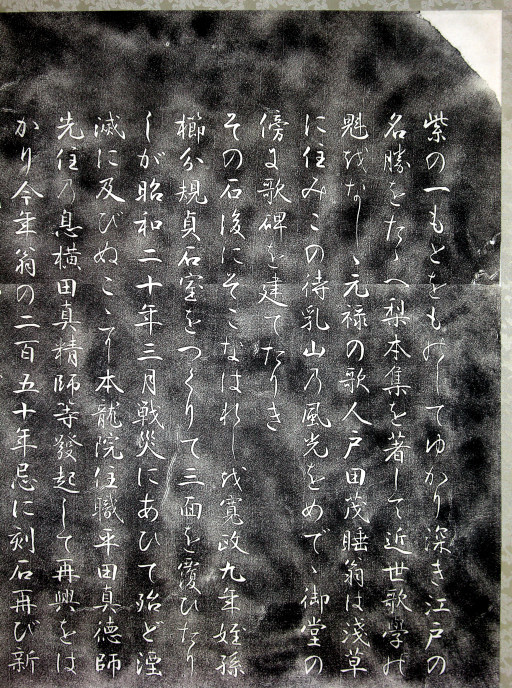 紫の一もとをものしてゆかり深き江戸の
名勝をたゝへ梨本集を著して近世歌學の
魁をなしゝ元禄の歌人戸田茂睡翁は浅草
に住みこの待乳山の風光をめでゝ御堂の
傍に歌碑を建てたりき
その石後にそこなはれしを寛政九年姪孫
櫛分規貞石室をつくりて三面を覆ひたり
しが昭和二十年三月戦災にあひて殆ど湮
滅に及びぬこゝに本龍院住職平田真徳師
先住の息横田真精師等發起して再興をは
かり今年翁の二百五十年忌に刻石再び新